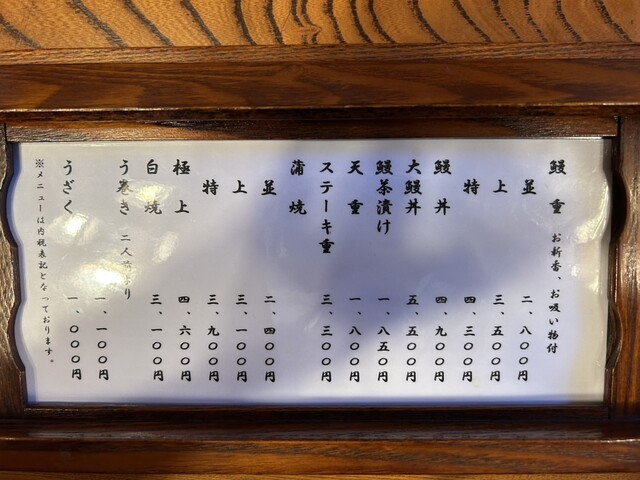 鰻重 お新香、お吸い物付
並 二、八〇〇円
上 三、五〇〇円
特 四、三〇〇円
鰻丼 四、九〇〇円
大鰻丼 五、五〇〇円
鰻茶漬け 一、八五〇円
天重 一、八〇〇円
ステーキ重 三、三〇〇円
蒲焼
並 二、四〇〇円
上 三、一〇〇円
特 三、九〇〇円
極上 四、六〇〇円
白焼 三、一〇〇円
う巻き 二人前より 一、一〇〇円
うざく 一、〇〇〇円
※メニューは内税表記となっております。